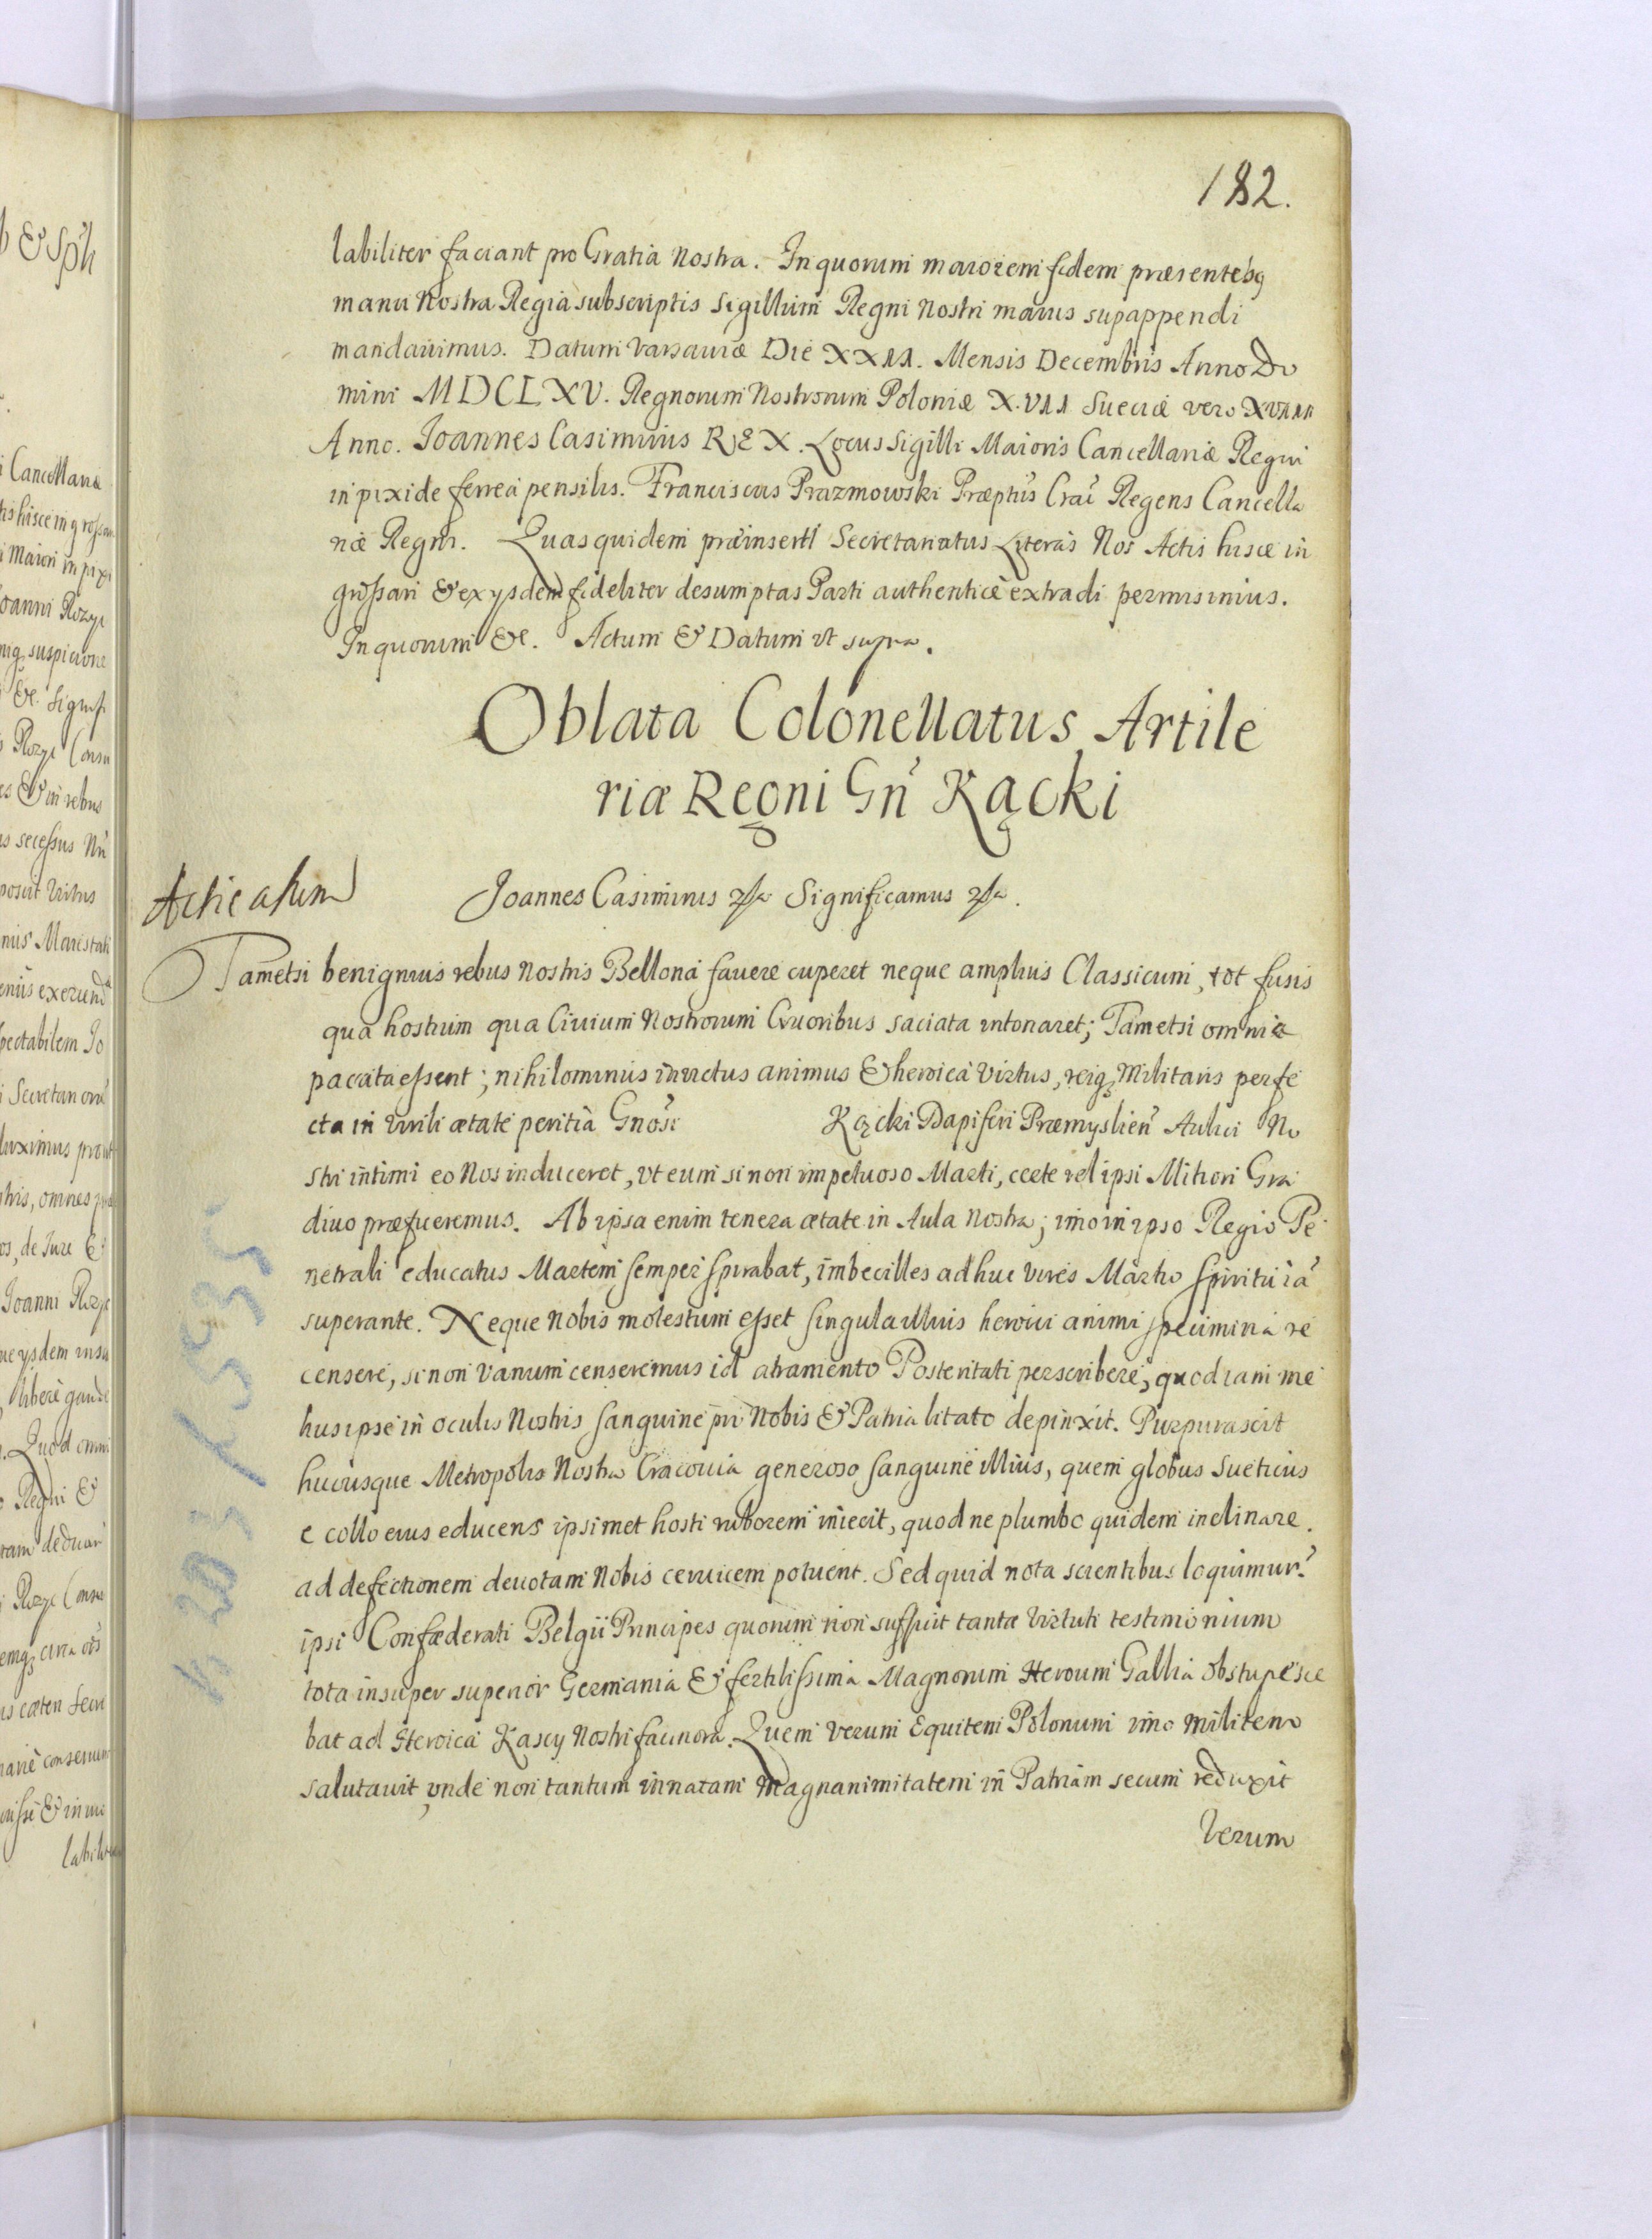 182.
labiliter faciant pro Gratia Nostra. In quorum maiorem fidem præsentibq
manu Nostra Regia subscriptis Sigillum Regni Nostri maius supappendi
mandauimus. Datum Varsauiæ Die XXII. Mensis Decembris Anno Do
mini MDCLXV. Regnorum Nostrorum Poloniæ X.VII Sueciæ vero XVIII
Anno. Joannes Casimirus REX. Locus Sigilli Maioris Cancellariæ Regni
in pixide ferrea pensilis. Franciscus Prazmowski Præptus Crac Regens Cancella
riæ Regni. Quas quidem præinserti Secretariatus Literas Nos Actis hisce in
grossari & ex ysdem fideliter desumptas Parti authenticè extradi permisimus.
In quorum &c. Actum & Datum vt supra.
Oblata Colonellatus Artile
riæ Regni Gn Kącki
Acticatum
Joannes Casimirus Significamus
Tametsi benignius rebus Nostris Bellona fauere cuperet neque amplius Classicum, tot fusis
qua hostium qua Ciuium Nostrorum Cruoribus saciata intonaret; Tametsi omnia
paccata essent; nihilominus inuictus animus & heroica Virtus, reiq Militaris perfe
cta in Virili ætate peritia Gnosi Kącki Dapiferi Præmyslien Aulici No
stri intimi eo Nos induceret, vt eum si non impetuoso Marti, certe vel ipsi Mitiori Gra
diuo præficeremus. Ab ipsa enim tenera ætate in Aula Nostra; imo in ipso Regio Pe
netrali educatus Martem semper spirabat, imbecilles adhuc vires Martio spiritu iã
superante. Neque Nobis molestum esset singula illius heroici animi specimina re
censere, si non vanum censeremus id atramento Posteritati perscribere, quod iam me
lius ipse in oculis Nostris sanguine pro Nobis & Patria litato depinxit. Purpurascit
hucusque Metropolis Nostra Cracouia generoso sanguine illius, quem globus Sueticus
e collo eius educens ipsimet hosti ruborem iniecit, quod ne plumbo quidem inclinare
ad defectionem deuotam Nobis ceruicem potuerit. Sed quid nota scientibus loquimur?
ipsi Confæderati Belgii Principes quorum non sufficit tantæ Virtuti testimonium
tota insuper superior Germania & fertilissima Magnorum Heroum Gallia obstupesce
bat ad Heroica Kascy Nostri facinora. Quem verum Equitem Polonum imo militem
salutauit, vnde non tantum innatam Magnanimitatem in Patriam secum reduxit
Verum